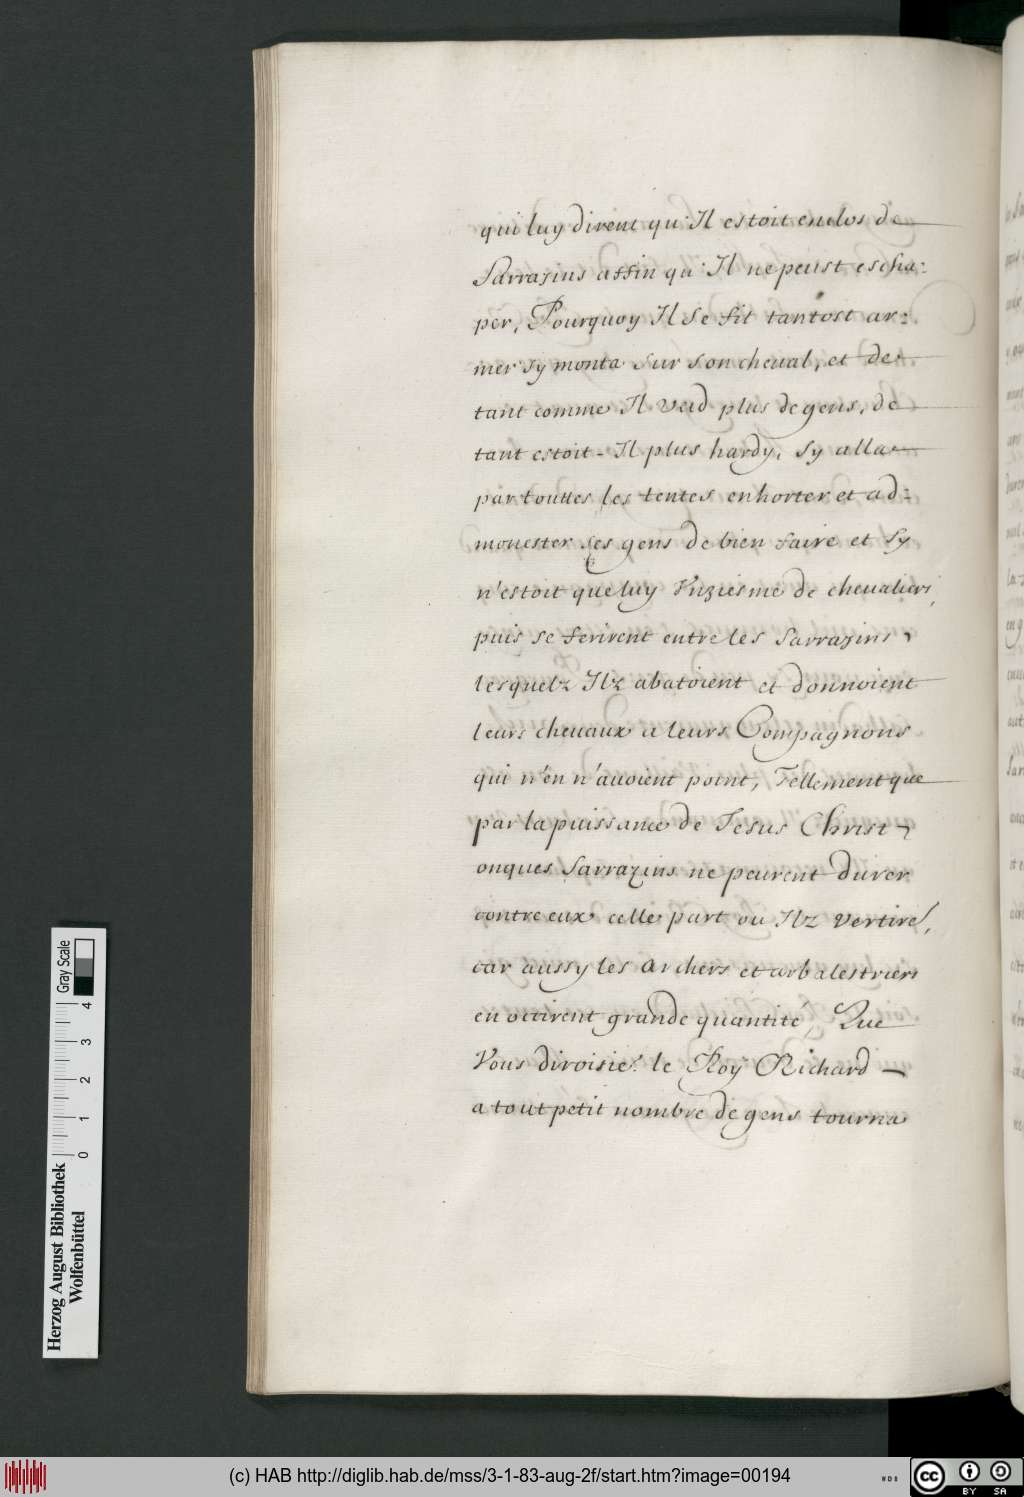 qui luy dirent qu'Il estoit enclos de
Sarrazins affin qu'Il ne peust escha:
per, Pourquoy Il se fit tantost ar:
mer sy monta sur son cheual, et de
tant comme Il veid plus de gens, de
tant estoit-Il plus hardy, sy alla
par touttes les tentes enhorter et ad:
monester ses gens de bien faire et sy
n'estoit que luy Vnziesme de cheualiers,
puis se ferirent entre les Sarrazins
lesquelz Ilz abatoient et donnoient
leurs cheuaux a leurs Compagnons
qui n'en n'auoient point, Tellement que
par la puissance de Jesus Christ
onques Sarrazins ne peurent durer
contre eux celle part ou Ilz vertiré,
car aussy les Archers et arbalestriers
en occirent grande quantité, Que
Vous diroisie? le Roy Richard
a tout petit nombre de gens tourna
Herzog August Bibliothek
Wolfenbüttel
0 1 2 3 4
Gray Scale
(c) HAB http://diglib.hab.de/mss/3-1-83-aug-2f/start.htm?image=00194
WDB
cc BY SA